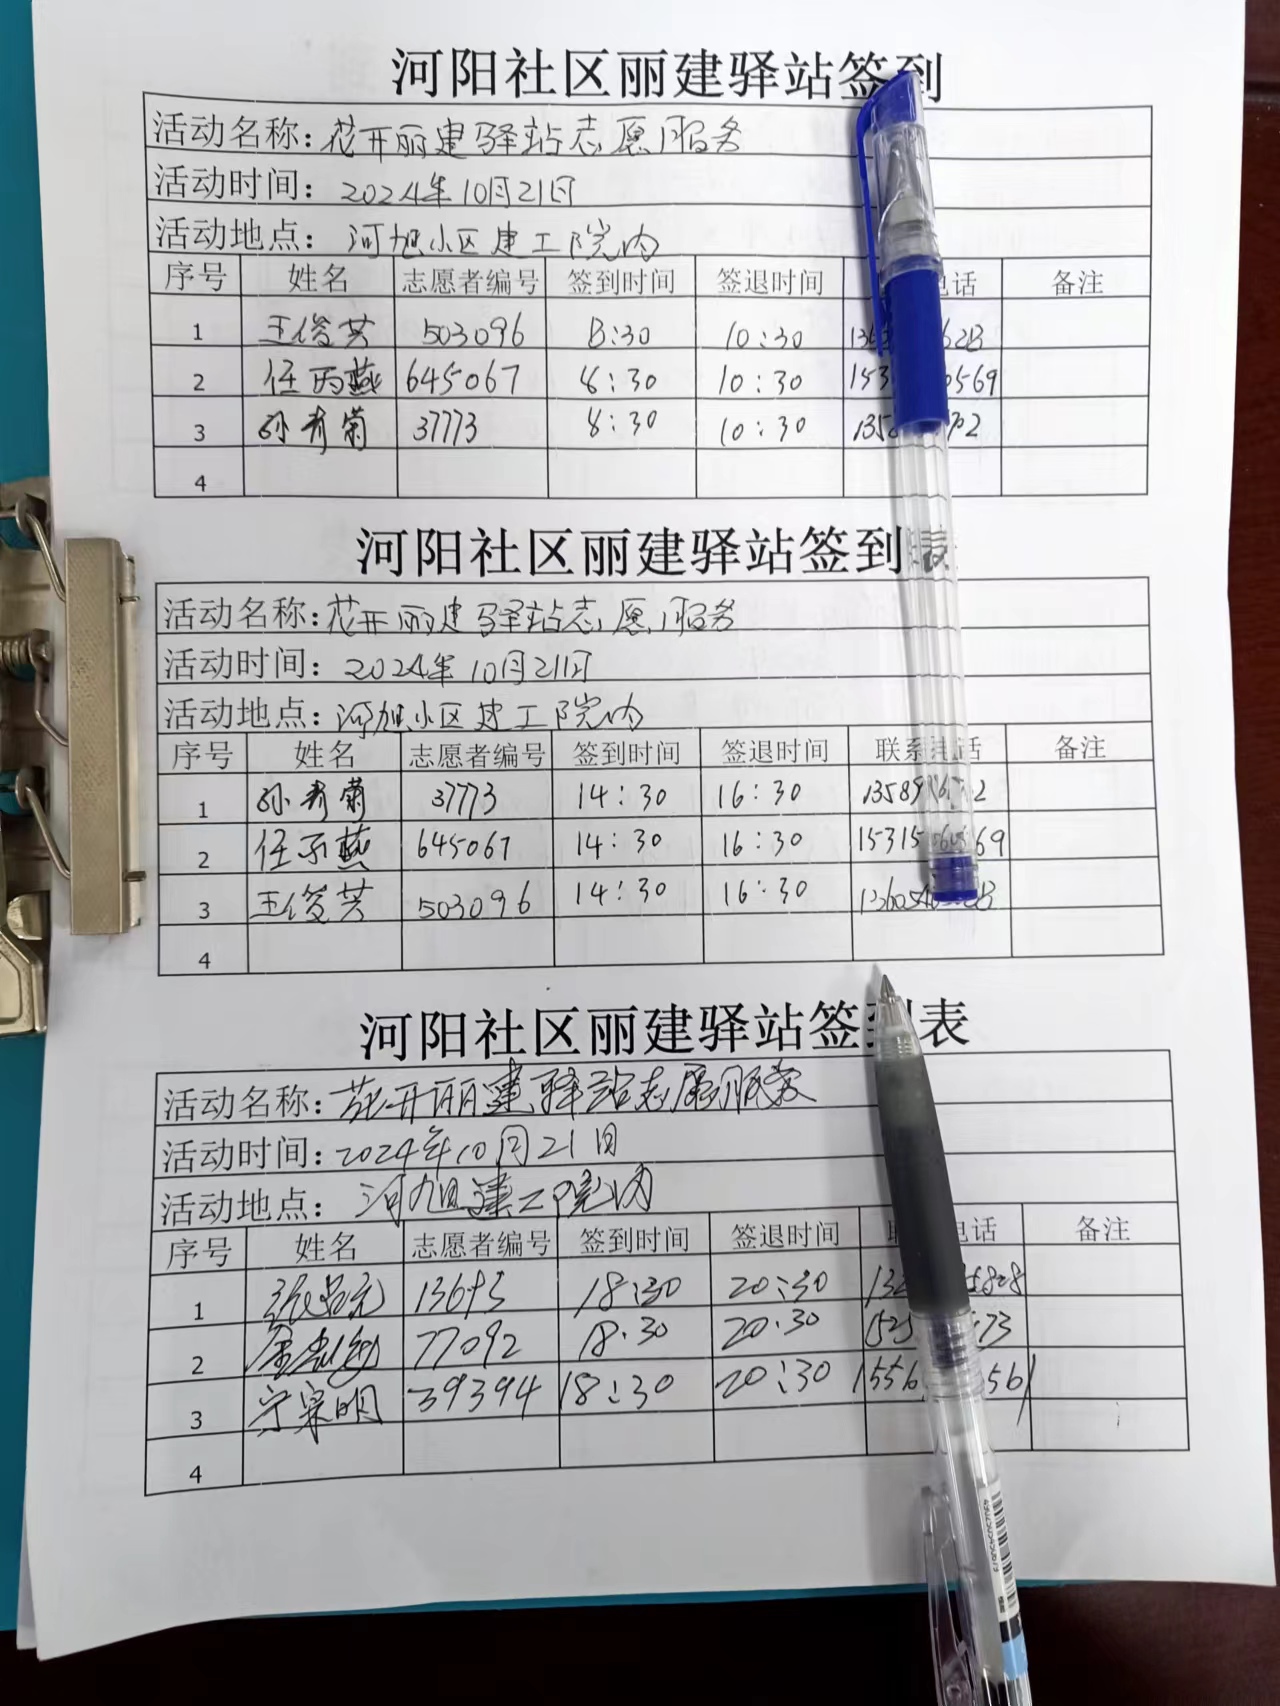 河阳社区丽建驿站签到
活动名称：花开丽建驿站志愿服务
活动时间：2024年10月21日
活动地点：河旭小区建工院内
序号 姓名 志愿者编号 签到时间 签退时间 电话 备注
1 王俊芸 503096 8:30 10:30
2 任丙燕 645067 8:30 10:30
3 孙秀菊 37773 8:30 10:30
4
河阳社区丽建驿站签到表
活动名称：花开丽建驿站志愿服务
活动时间：2024年10月21日
活动地点：河旭小区建工院内
序号 姓名 志愿者编号 签到时间 签退时间 联系电话 备注
1 孙秀菊 37773 14:30 16:30
2 任丙燕 645067 14:30 16:30
3 王俊芸 503096 14:30 16:30
4
河阳社区丽建驿站签到表
活动名称：花开丽建驿站志愿服务
活动时间：2024年10月21日
活动地点：河旭建工院内
序号 姓名 志愿者编号 签到时间 签退时间 电话 备注
1 18:30 20:30
2 77092 18:30 20:30
3 宁杲明 39394 18:30 20:30
4